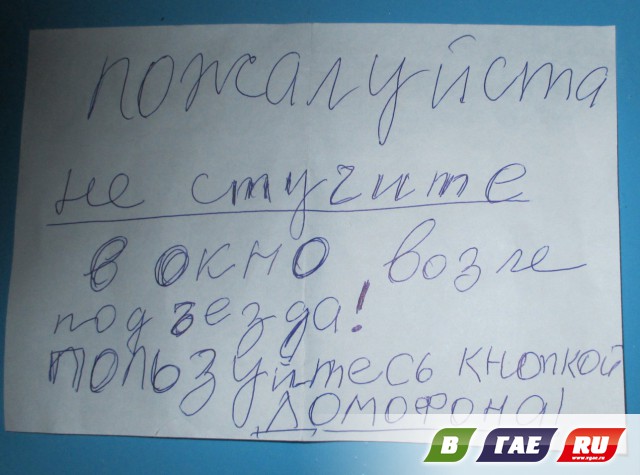 пожалуйста
не стучите
в окно возле
подъезда!
пользуйтесь кнопкой
домофона!
В ГАЕ RU
www.vgae.ru